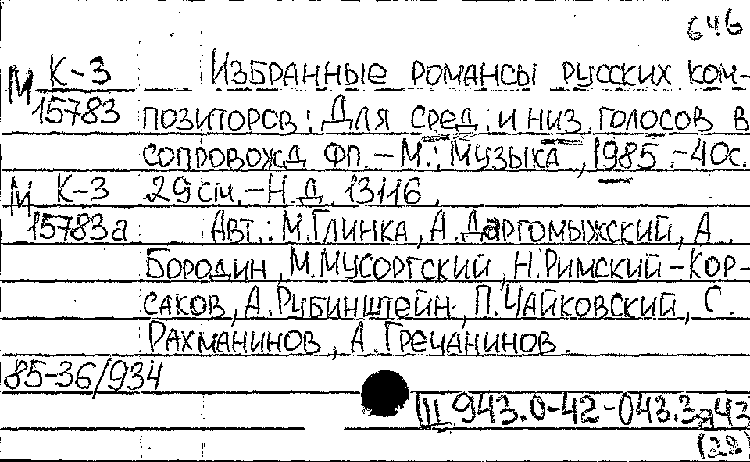 646
М К-3 Избранные романсы русских ком-
15783 позиторов: Для сред. и низ. голосов в
сопровожд. фп. – М.: Музыка, 1985. – 40с.
М К-3 29см. – Н.д. 13116.
15783а Авт.: М.Глинка, А.Даргомыжский, А.
Бородин, М.Мусоргский, Н.Римский-Кор-
саков, А.Рубинштейн, П.Чайковский, С.
Рахманинов, А.Гречанинов.
85-36/934
Ш 943.0-42-043.3я43
(22)